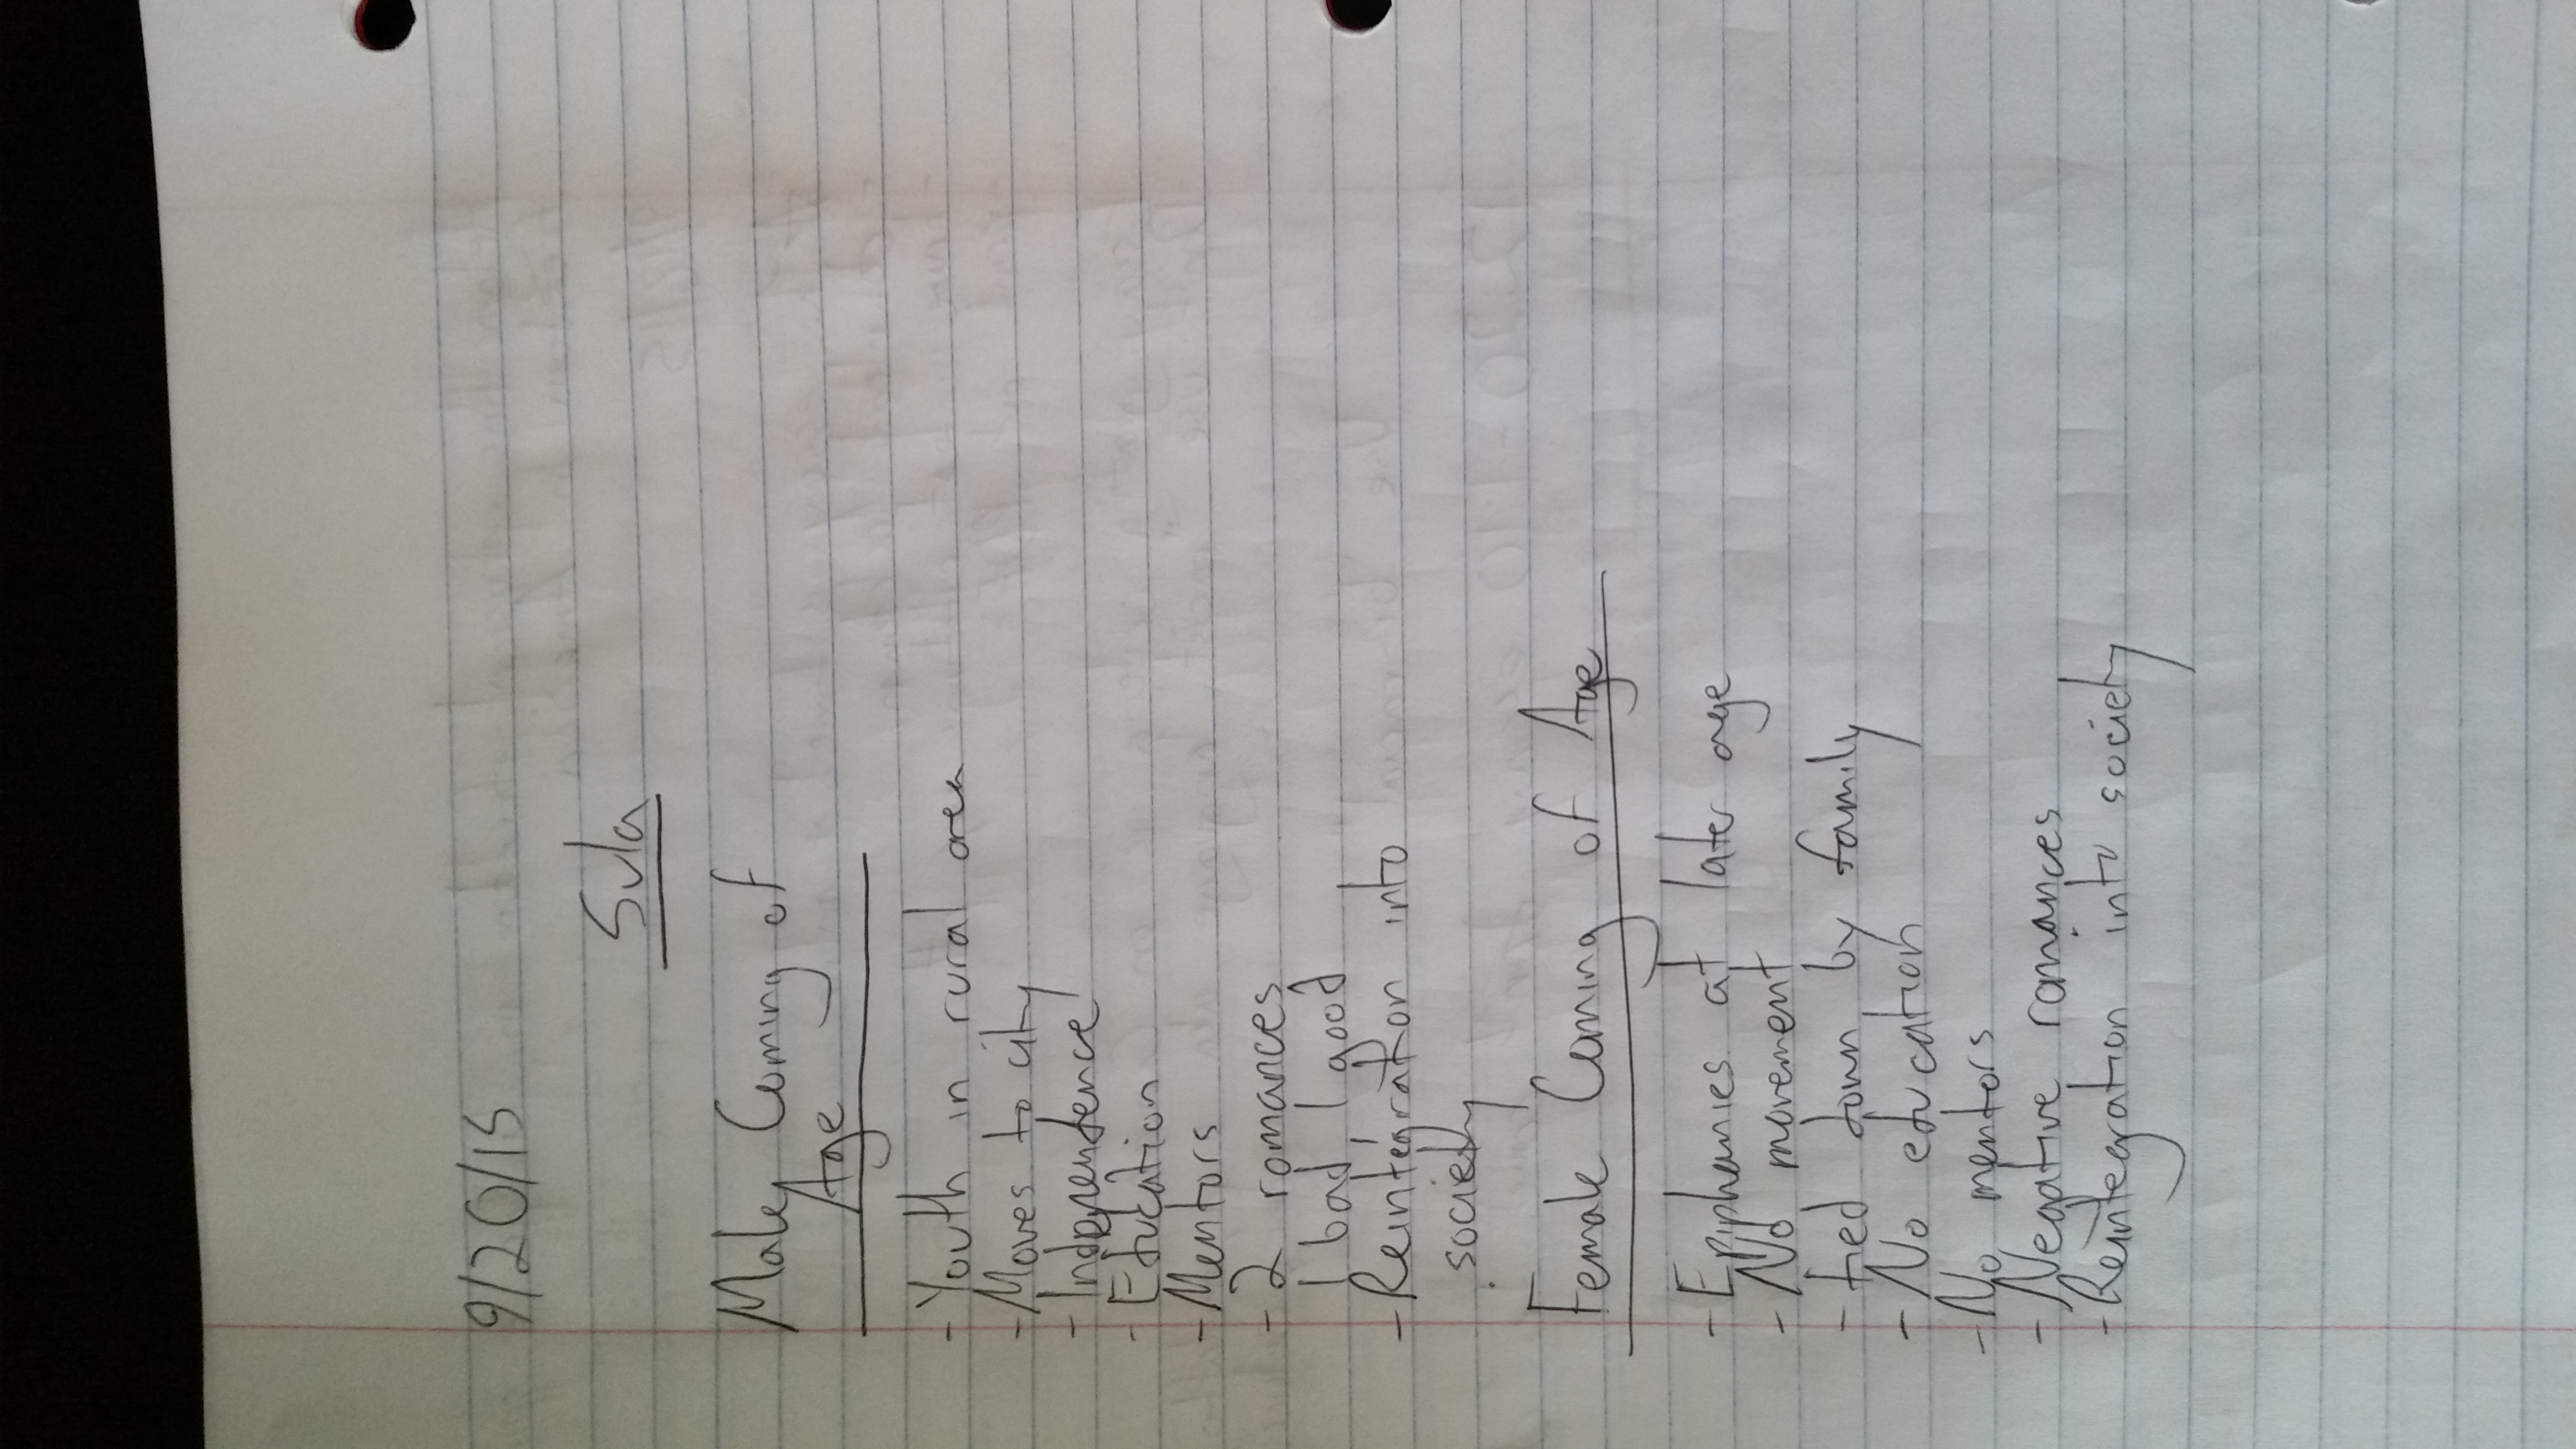 9/20/15
Sula
Male Coming of
Age
- Youth in rural area
- Moves to city
- Independence
- Education
- Mentors
- 2 romances
1 bad 1 good
- Reintegration into
society
Female Coming of Age
- Epiphanies at later age
- No movement
- tied down by family
- No education
- No mentors
- Negative romances
- Reintegration into society